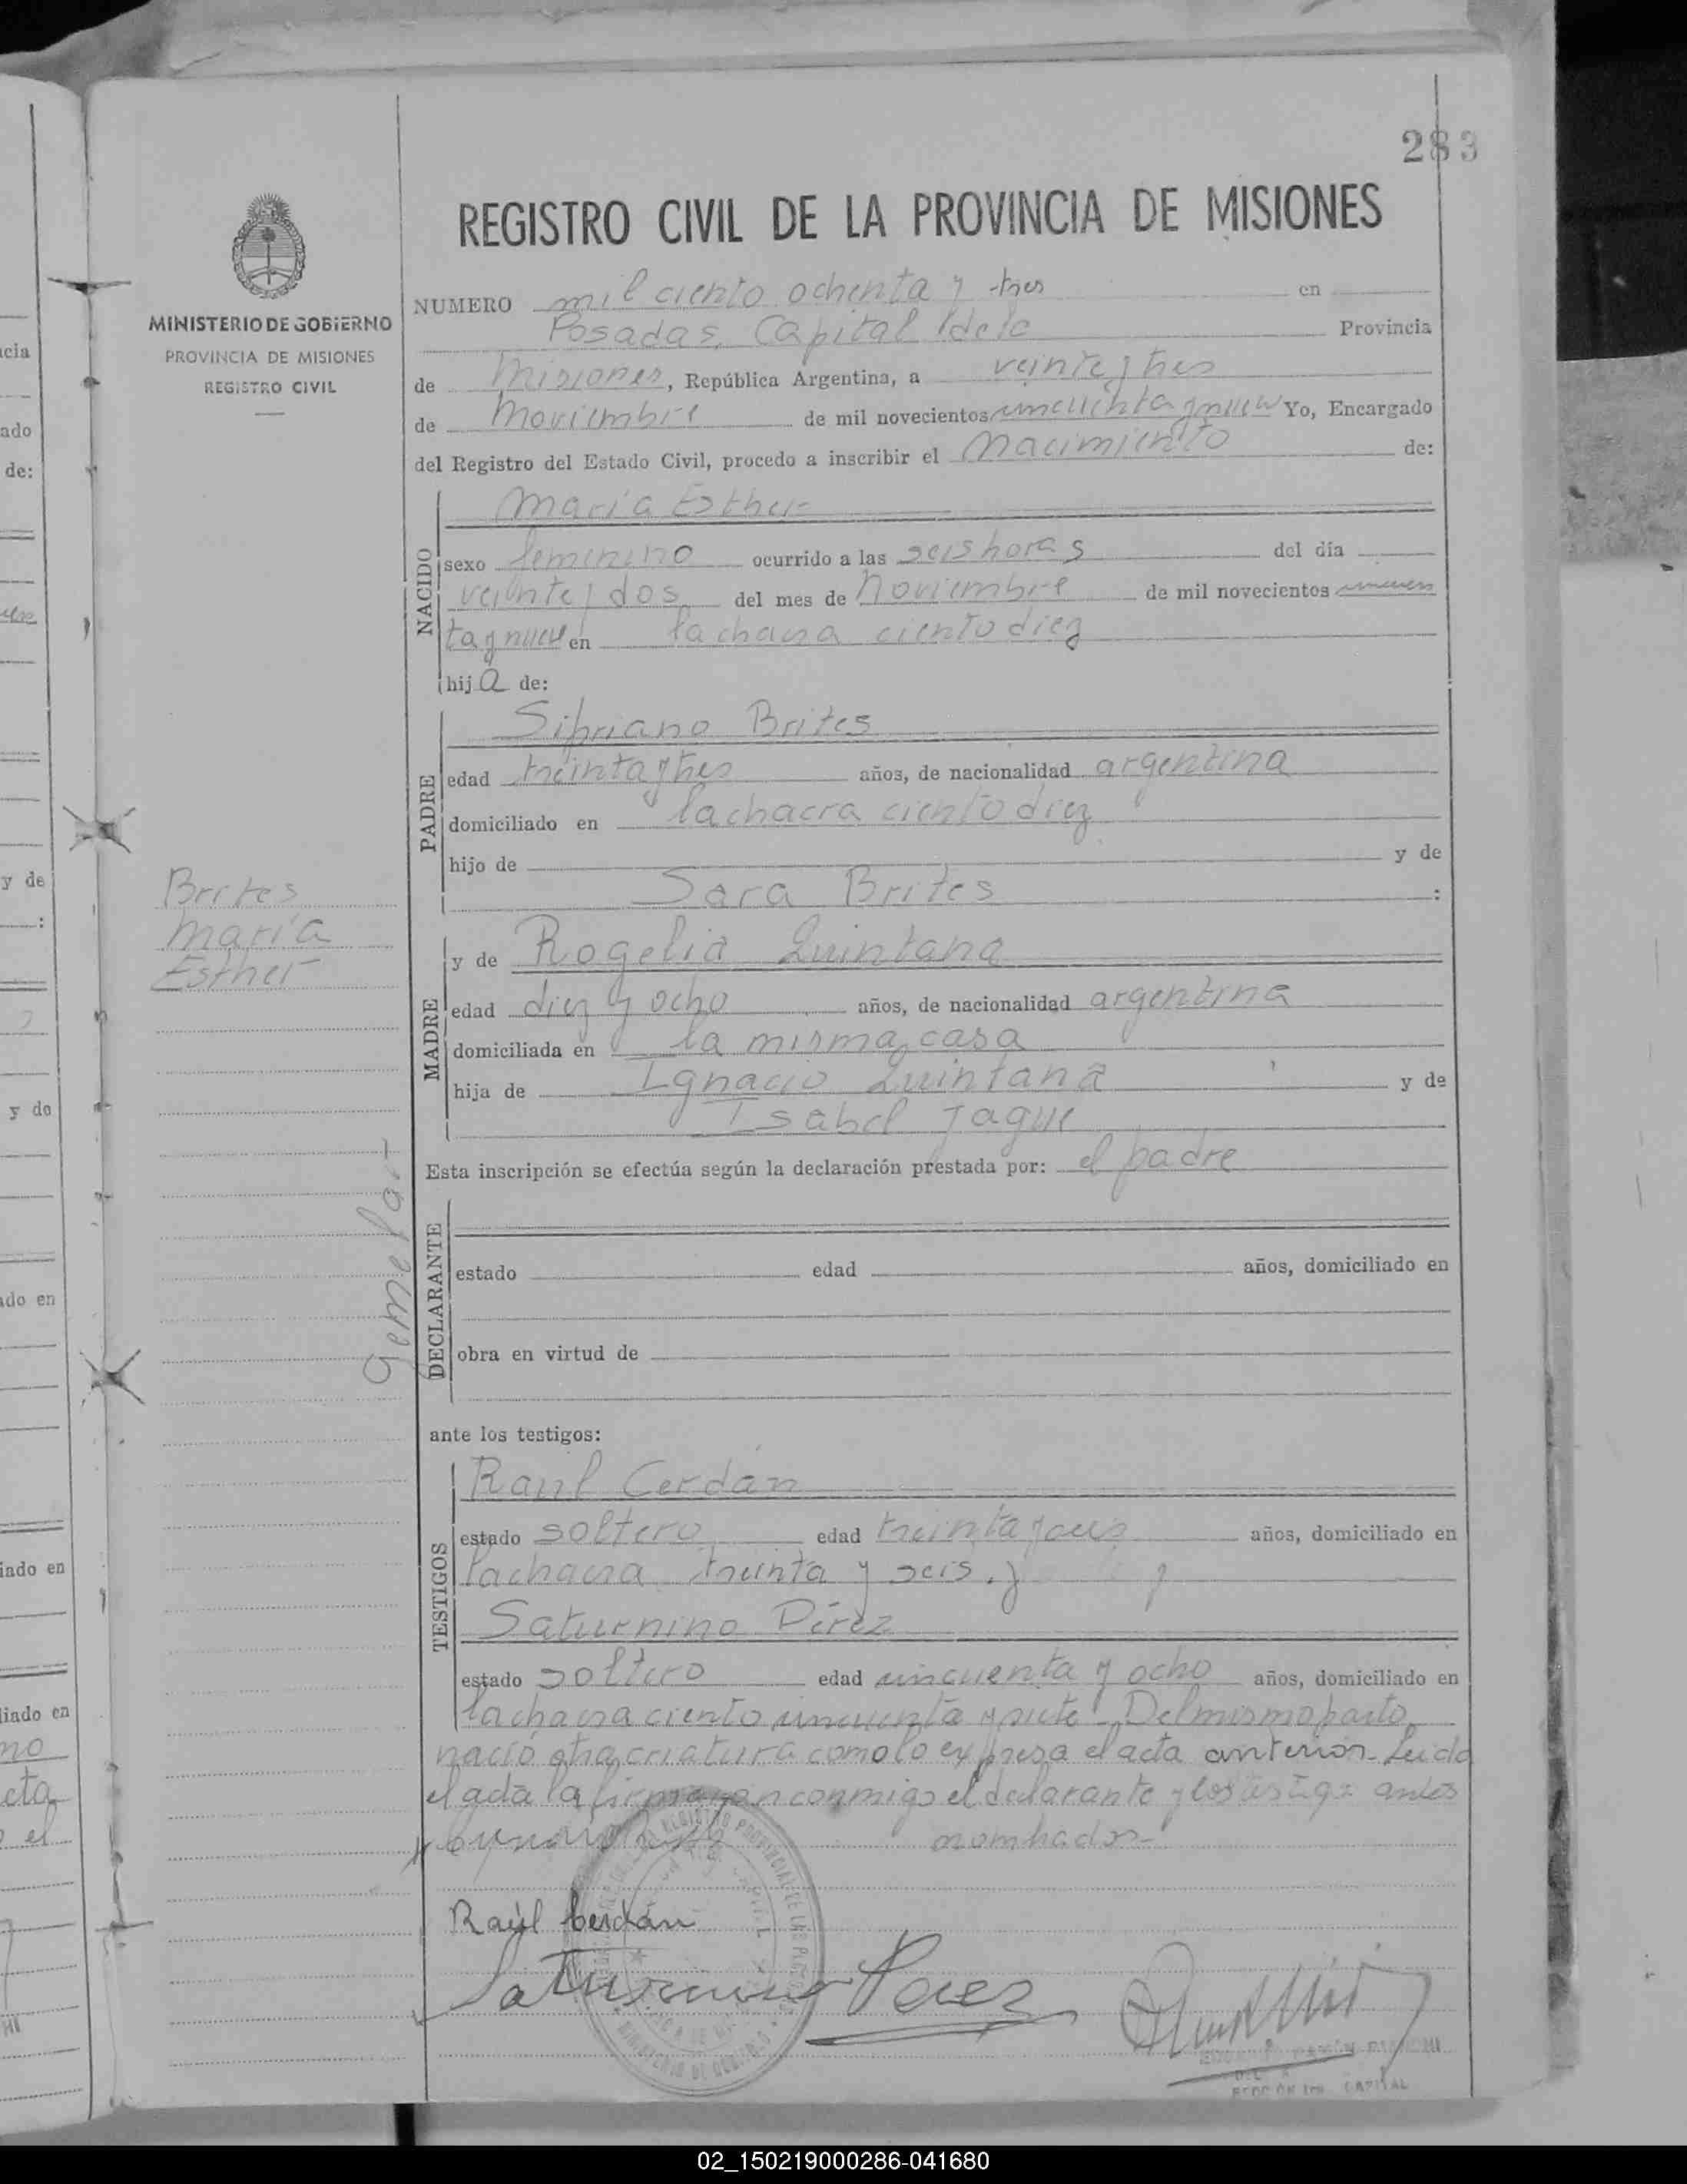 283
REGISTRO CIVIL DE LA PROVINCIA DE MISIONES
MINISTERIO DE GOBIERNO
PROVINCIA DE MISIONES
REGISTRO CIVIL
NUMERO mil ciento ochenta y tres en
Posadas, Capital de la Provincia
de Misiones, República Argentina, a veinte y tres
de Noviembre de mil novecientos cincuenta y nueve Yo, Encargado
del Registro del Estado Civil, procedo a inscribir el Nacimiento de:
NACIDO
Maria Esther
sexo femenino ocurrido a las seis horas del día
veinte y dos del mes de Noviembre de mil novecientos cincuen
ta y nueve en la chacra ciento diez
hija de:
PADRE
Sipriano Brites
edad treinta y tres años, de nacionalidad argentina
domiciliado en la chacra ciento diez
hijo de y de
Sara Brites :
Brites
Maria
Esther
MADRE
y de Rogelia Quintana
edad diez y ocho años, de nacionalidad argentina
domiciliada en la misma casa
hija de Ignacio Quintana y de
Isabel Jaque
Esta inscripción se efectúa según la declaración prestada por: el padre
Gemelar
DECLARANTE
estado edad años, domiciliado en
obra en virtud de
ante los testigos:
TESTIGOS
Raul Cerdan
estado soltero edad treinta y años, domiciliado en
la chacra treinta y seis, y
Saturnino Pérez
estado soltero edad cincuenta y ocho años, domiciliado en
la chacra ciento cincuenta y siete - Del mismo parto
nació otra criatura como lo expresa el acta anterior - Leida
el acta la firmaron conmigo el declarante y los testigos antes
nombrados -
Raúl Cerdán
Saturnino Perez
CAPITAL
02_150219000286-041680